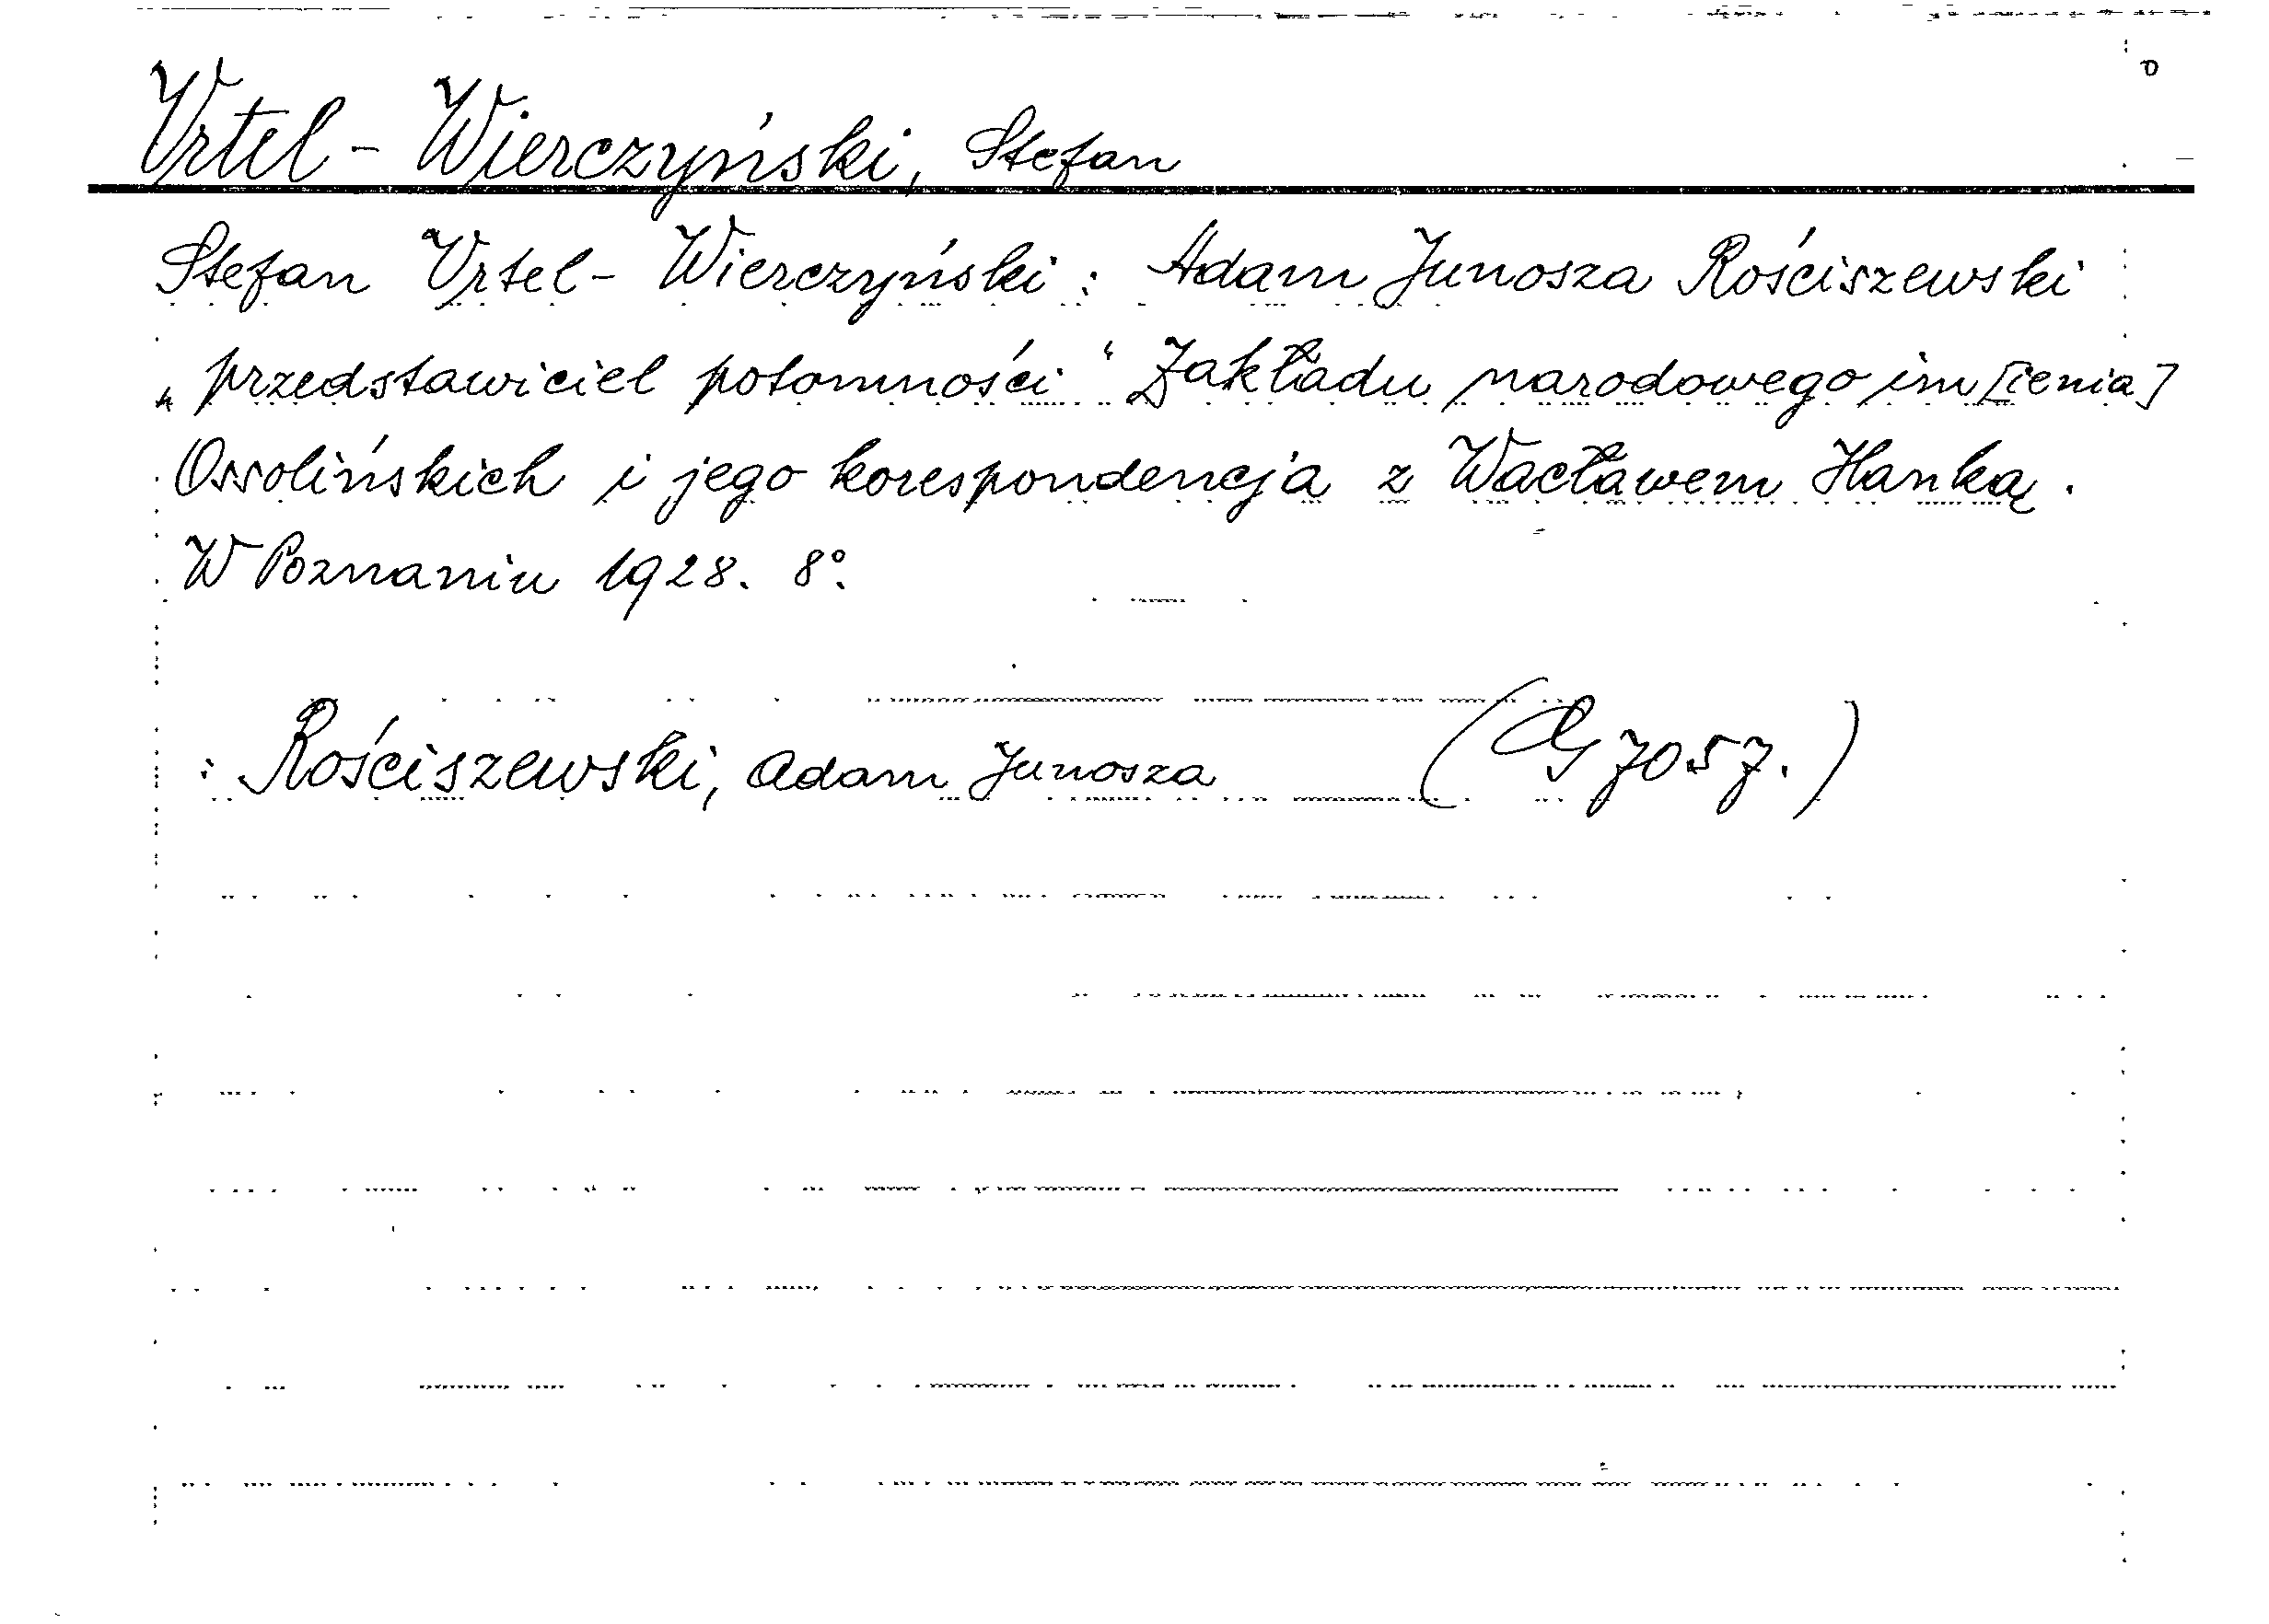 Vrtel-Wierczyński, Stefan
Stefan Vrtel-Wierczyński: Adam Junosza Rościszewski
„przedstawiciel potomności“ Zakładu narodowego im[ienia]
Ossolińskich i jego korespondencja z Wacławem Hanką.
W Poznaniu 1928. 8°.
: Rościszewski, Adam Junosza (G 7057.)